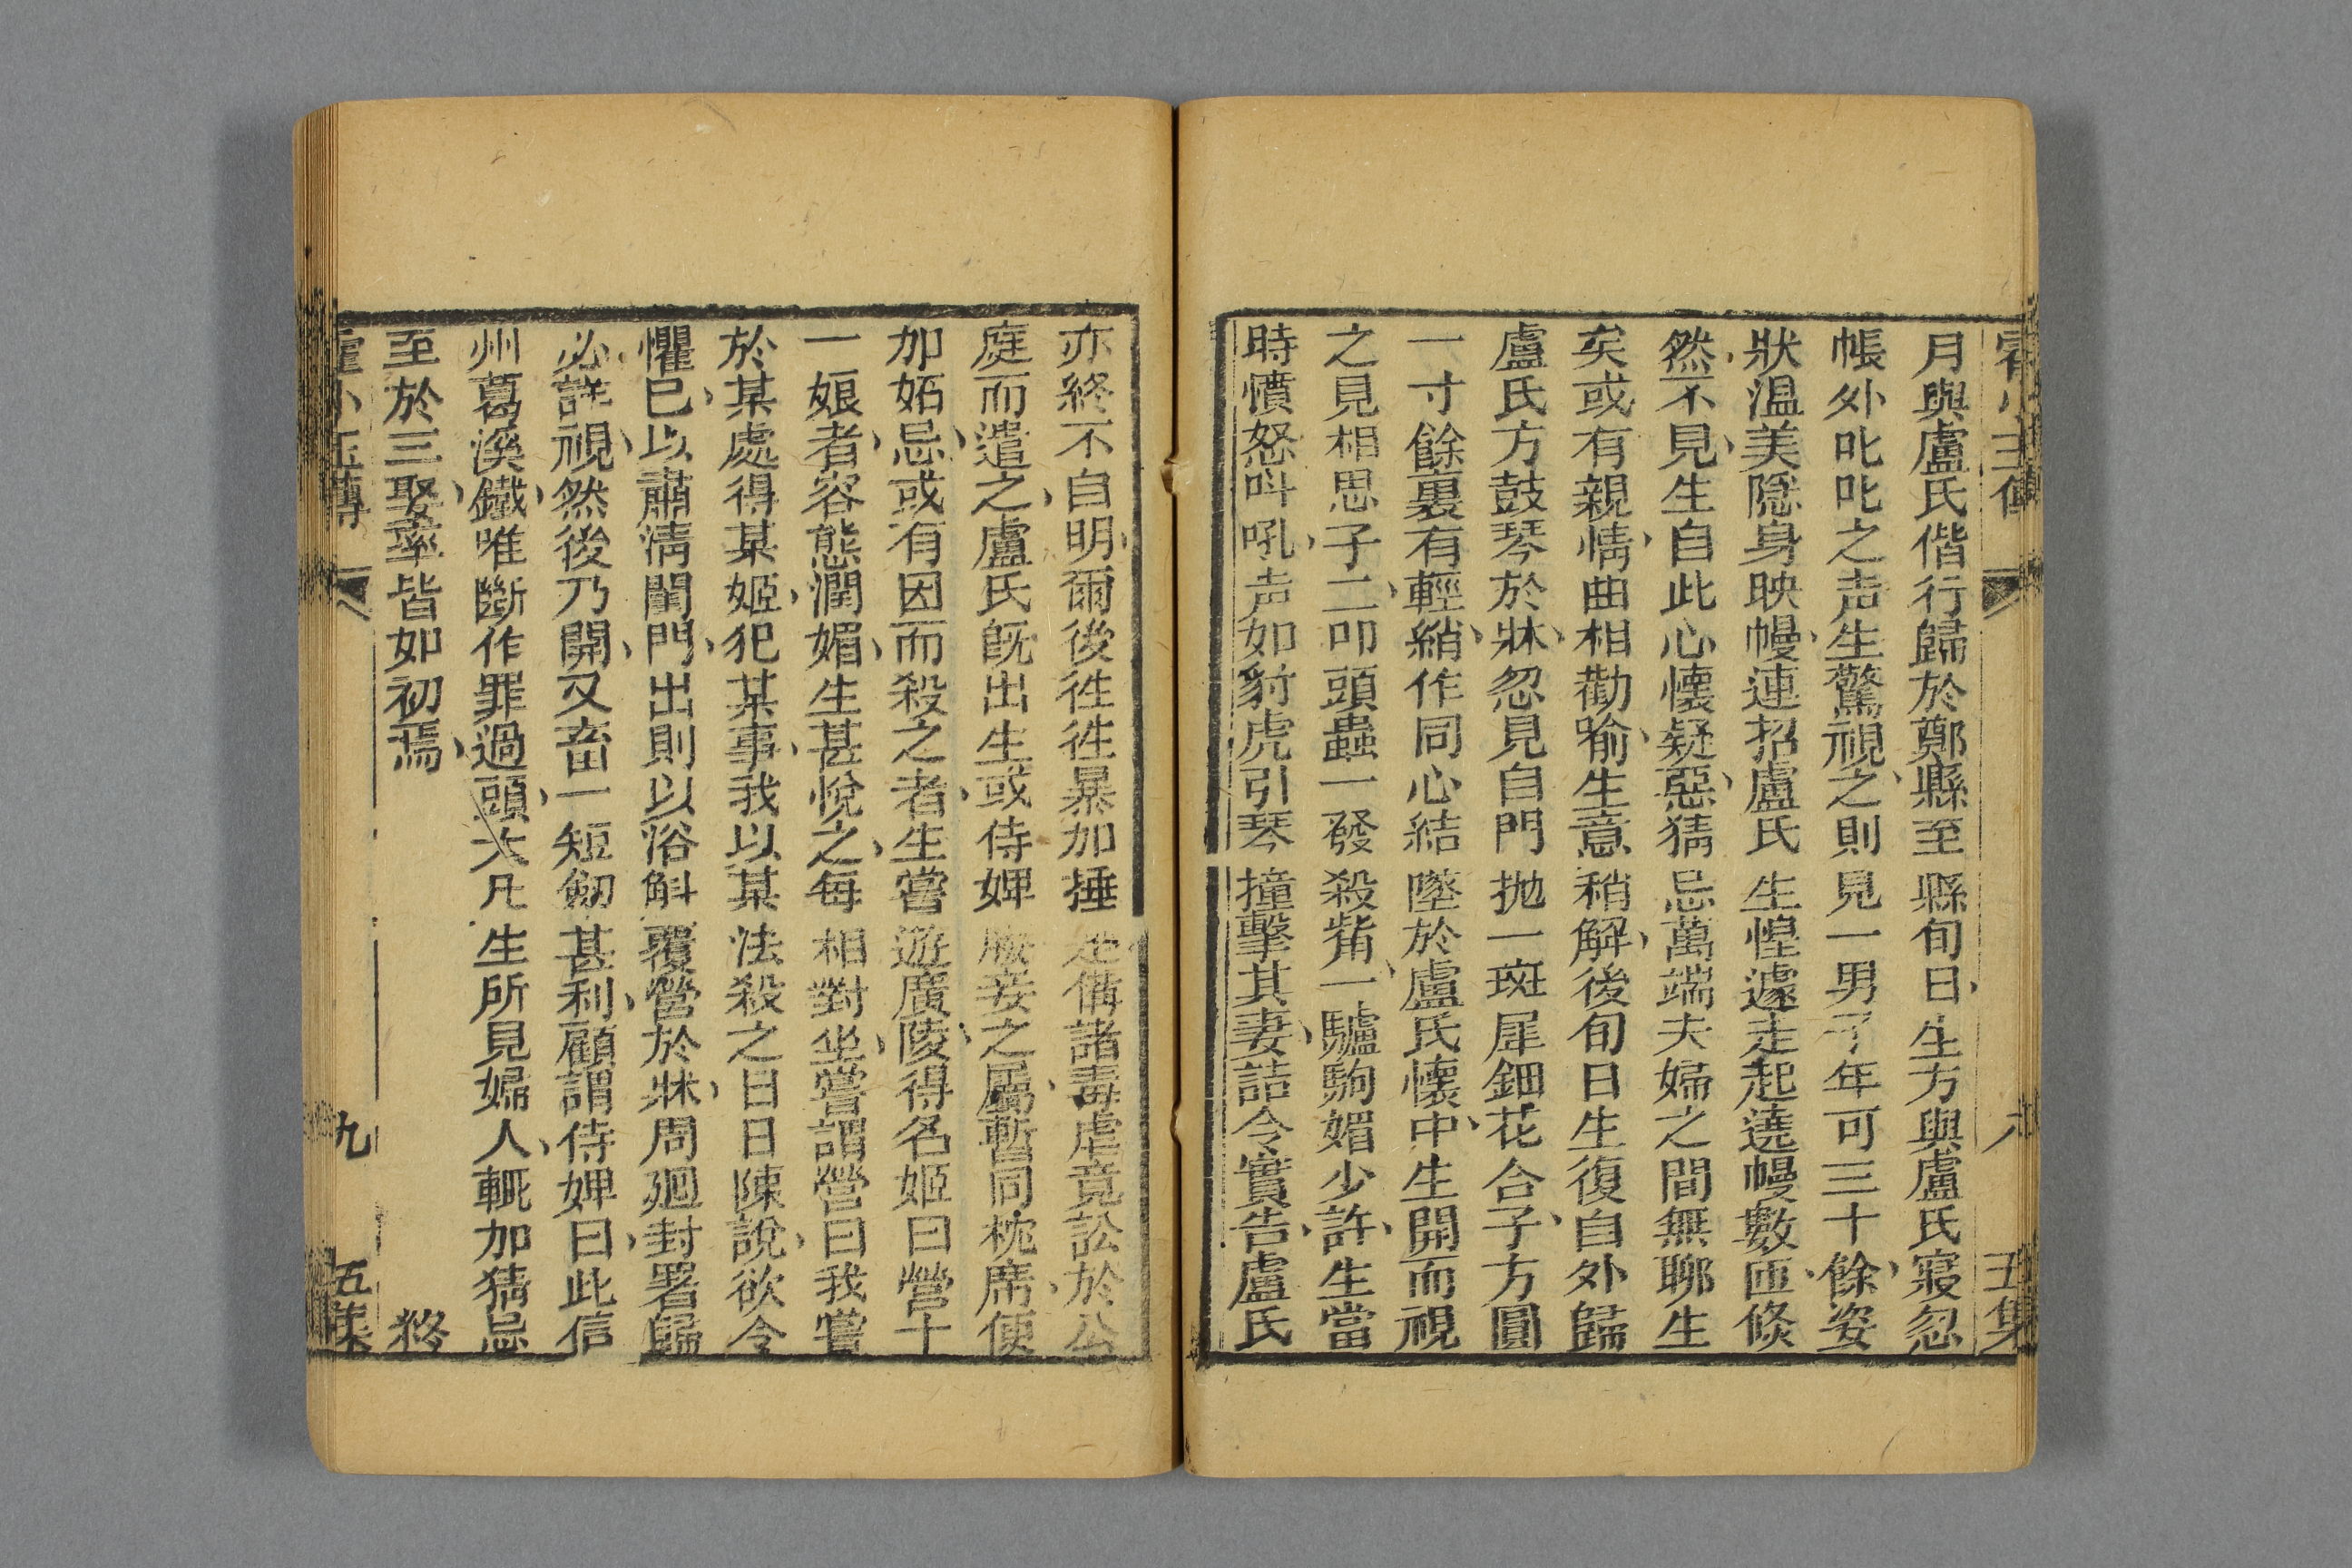 霍小玉傳 八 五集
月與盧氏偕行歸於鄭縣至縣旬日生方與盧氏寢忽
帳外叱叱之声生驚視之則見一男子年可三十餘姿
狀温美隱身映幔連招盧氏生惶遽走起遶幔數匝倐
然不見生自此心懷疑惡猜忌萬端夫婦之間無聊生
矣或有親情曲相勸喻生意稍解後旬日生復自外歸
盧氏方鼓琴於牀忽見自門抛一斑犀鈿花合子方圓
一寸餘裏有輕綃作同心結墜於盧氏懷中生開而視
之見相思子二叩頭蟲一發殺觜一驢駒媚少許生當
時憤怒呌吼声如豺虎引琴撞擊其妻詰令實告盧氏
亦終不自明爾後徃徃暴加捶楚備諸毒虐竟訟於公
庭而遣之盧氏既出生或侍婢媵妾之屬暫同枕席便
加妬忌或有因而殺之者生嘗遊廣陵得名姬曰營十
一娘者容態潤媚生甚悅之每相對坐嘗謂營曰我嘗
於某處得某姬犯某事我以某法殺之日日陳說欲令
懼已以肅清閨門出則以浴斛覆營於牀周廻封署歸
必詳視然後乃開又畜一短劒甚利顧謂侍婢曰此信
州葛溪鐵唯斷作罪過頭大凡生所見婦人輒加猜忌
至於三娶率皆如初焉 終
霍小玉傳 九 五集